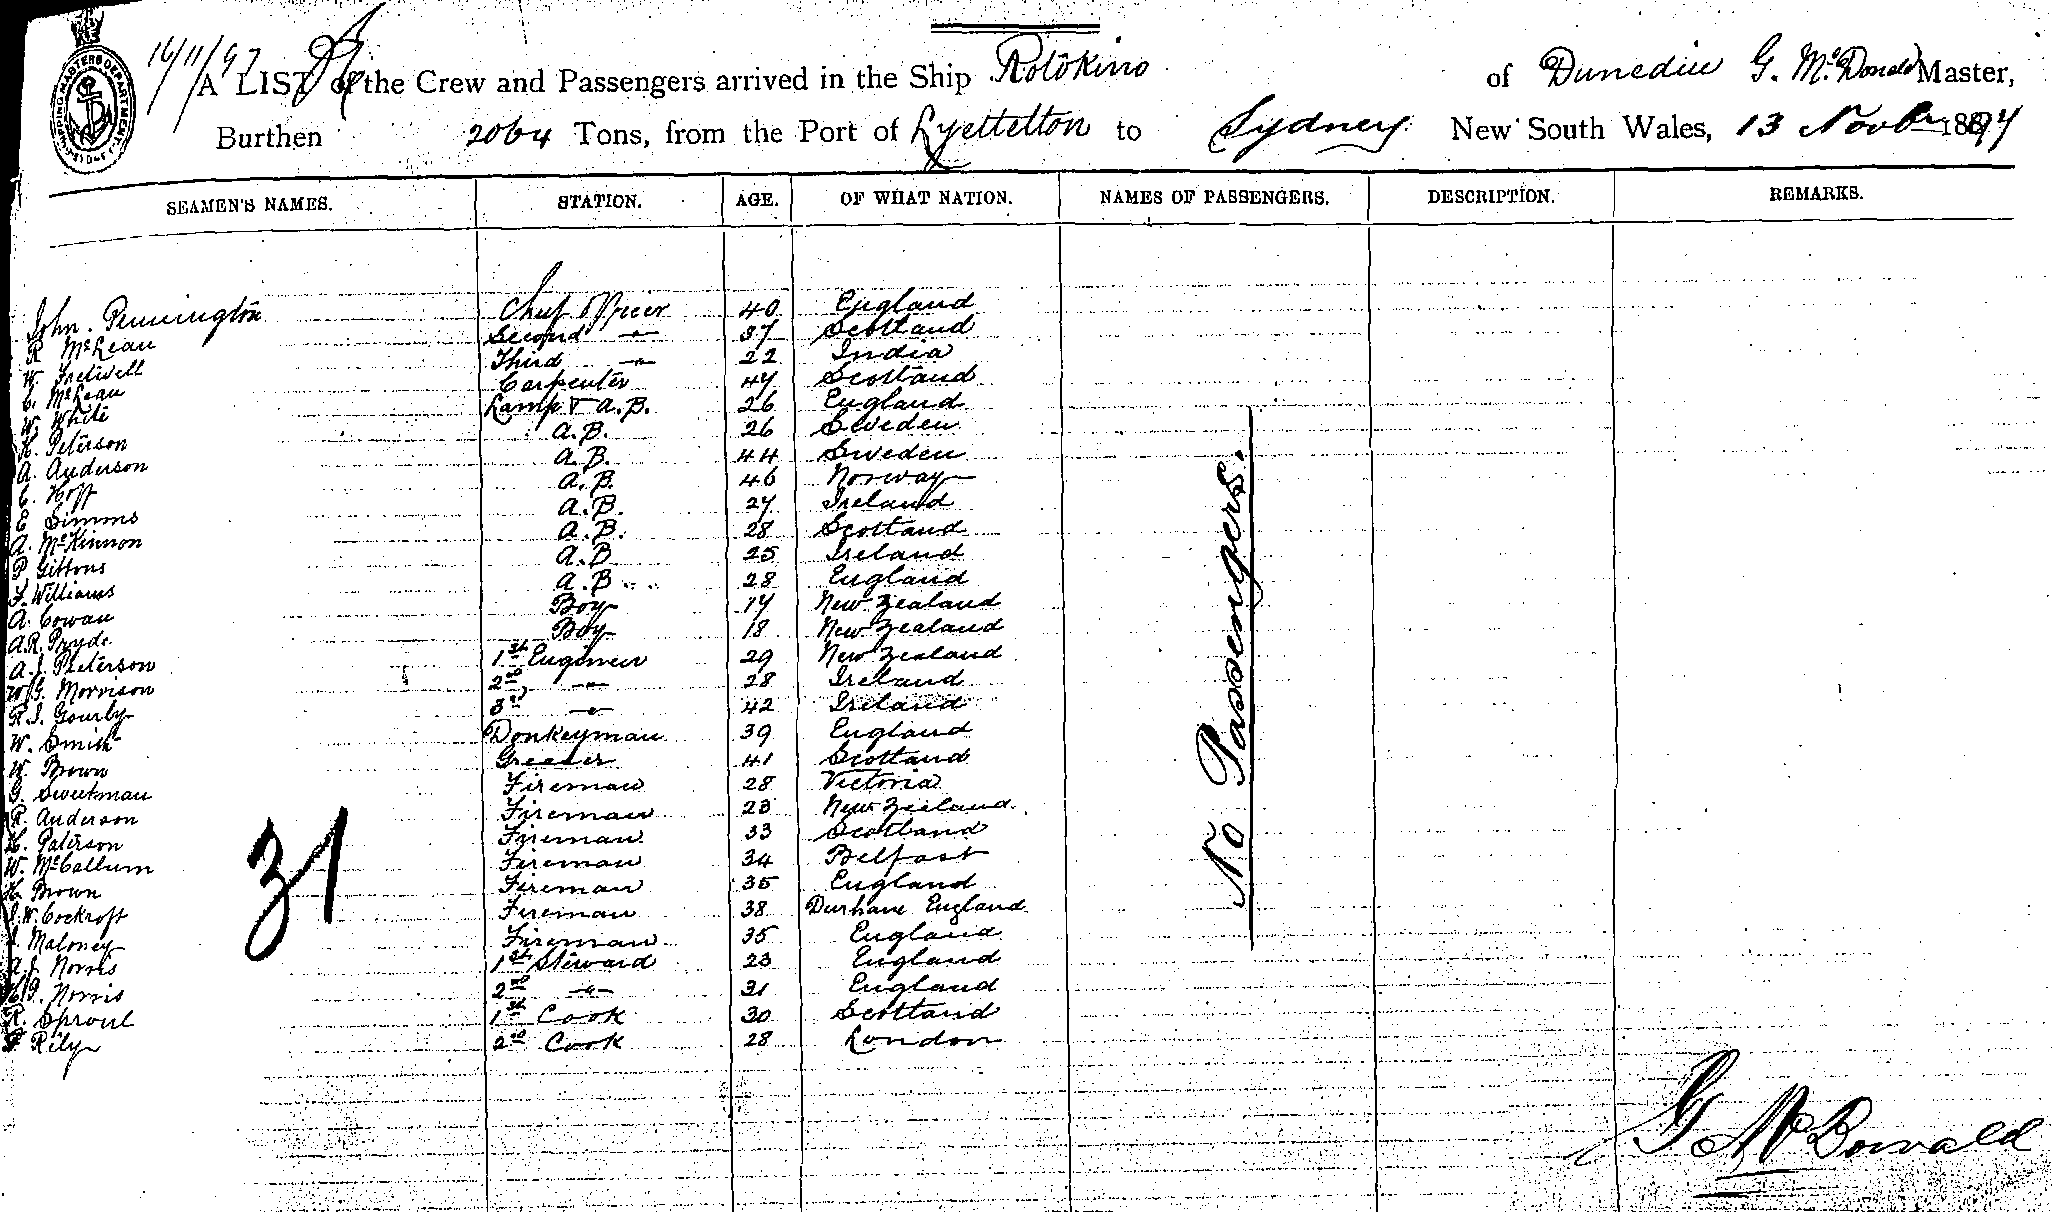 16/11/97
A LIST of the Crew and Passengers arrived in the Ship Rotokino of Dunedin G. McDonald Master,
Burthen 2064 Tons, from the Port of Lyettelton to Sydney New South Wales, 13 Novbr 1897
SEAMEN'S NAMES. STATION. AGE. OF WHAT NATION. NAMES OF PASSENGERS. DESCRIPTION. REMARKS.
John Pennington Chief Officer 40 England
R McLean Second —"— 37 Scotland
W. Fretwell Third —"— 22 India
C. McLean Carpenter 47 Scotland
W. White Lamp & A.B. 26 England
H. Peterson A.B. 26 Sweden
A. Anderson A.B. 44 Sweden
C. Hoff A.B. 46 Norway
C Simms A.B. 27 Ireland
A. McKinnon A.B. 28 Scotland
P Gittons A.B 25 Ireland
F. Williams A.B 28 England
A. Cowan Boy 17 New Zealand
A.R. Pryde Boy 18 New Zealand
A.J. Paterson 1st Engineer 29 New Zealand
W.G. Morrison 2nd —"— 28 Ireland
R.J. Gourly 3rd —"— 42 Ireland
W. Smith Donkeyman 39 England
W. Brown Greaser 41 Scotland
G. Sweetman Fireman 28 Victoria
R. Anderson Fireman 23 New Zealand
H. Paterson Fireman 33 Scotland
W. McCallum Fireman 34 Belfast
H. Brown Fireman 35 England
J.W. Cockroft Fireman 38 Durham England
Maloney Fireman 35 England
A.J. Norris 1st Steward 23 England
Norris 2nd —"— 31 England
R. Sproul 1st Cook 30 Scotland
Rily 2nd Cook 28 London
31
No Passengers.
G McDonald